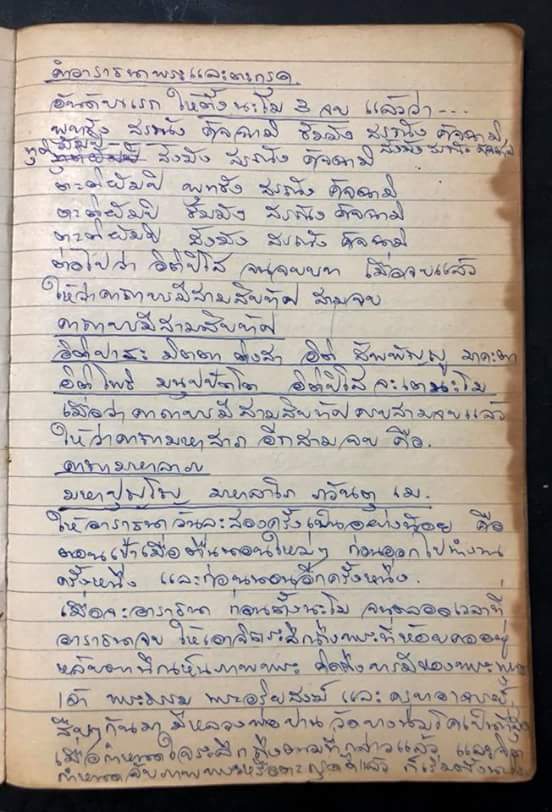 คำอาราธนาพระและตะกรุด
อันดับแรก ให้ตั้งนะโม 3 จบ แล้วว่า ---
พุทธัง สรณัง คัจฉามิ ธัมมัง สรณัง คัจฉามิ
สังฆัง สรณัง คัจฉามิ สังฆัง สรณัง คัจฉามิ
ตะติยัมปิ พุทธัง สรณัง คัจฉามิ
ตะติยัมปิ ธัมมัง สรณัง คัจฉามิ
ตะติยัมปิ สังฆัง สรณัง คัจฉามิ
ต่อไปว่า อิติปิโส จนจบบท เมื่อจบแล้ว
ให้ว่าคาถาบารมีสามสิบทัศ สามจบ
คาถาบารมีสามสิบทัศ
อิติปาระ มิตตา ติงสา อิติ สัพพัญญู มาคะตา
อิติ โพธิ มนุปปัตโต อิติปิโส จะเตนะโม
เมื่อว่าคาถาบารมีสามสิบทัศครบสามจบแล้ว
ให้ว่าคาถามหาลาภ อีกสามจบ คือ.
คาถามหาลาภ
มหาปุญโญ มหาลาโภ ภวันตุ เม.
ให้อาราธนาวันละสองครั้งเป็นอย่างน้อย คือ
ตอนเช้าเมื่อตื่นนอนใหม่ๆ ก่อนออกไปทำงาน
ครั้งหนึ่ง และก่อนนอนอีกครั้งหนึ่ง.
เมื่อจะอาราธนา ก่อนตั้งนะโม จนตลอดเวลาที่
อาราธนาจบ ให้เอาจิตระลึกถึงพระที่ห้อยคออยู่
หลับตานึกเห็นภาพพระ คิดถึงบารมีของพระพุทธ
เจ้า พระธรรม พระอริยสงฆ์ และครูบาอาจารย์ที่
สืบๆกันมา มีหลวงพ่อปาน วัดบางนมโคเป็นที่สุด
เมื่อกำหนดใจระลึกถึงตามที่กล่าวแล้ว และจิต
กำหนดจับภาพพระหรือตะกรุดได้แล้ว ก็เริ่มตั้งนะโม